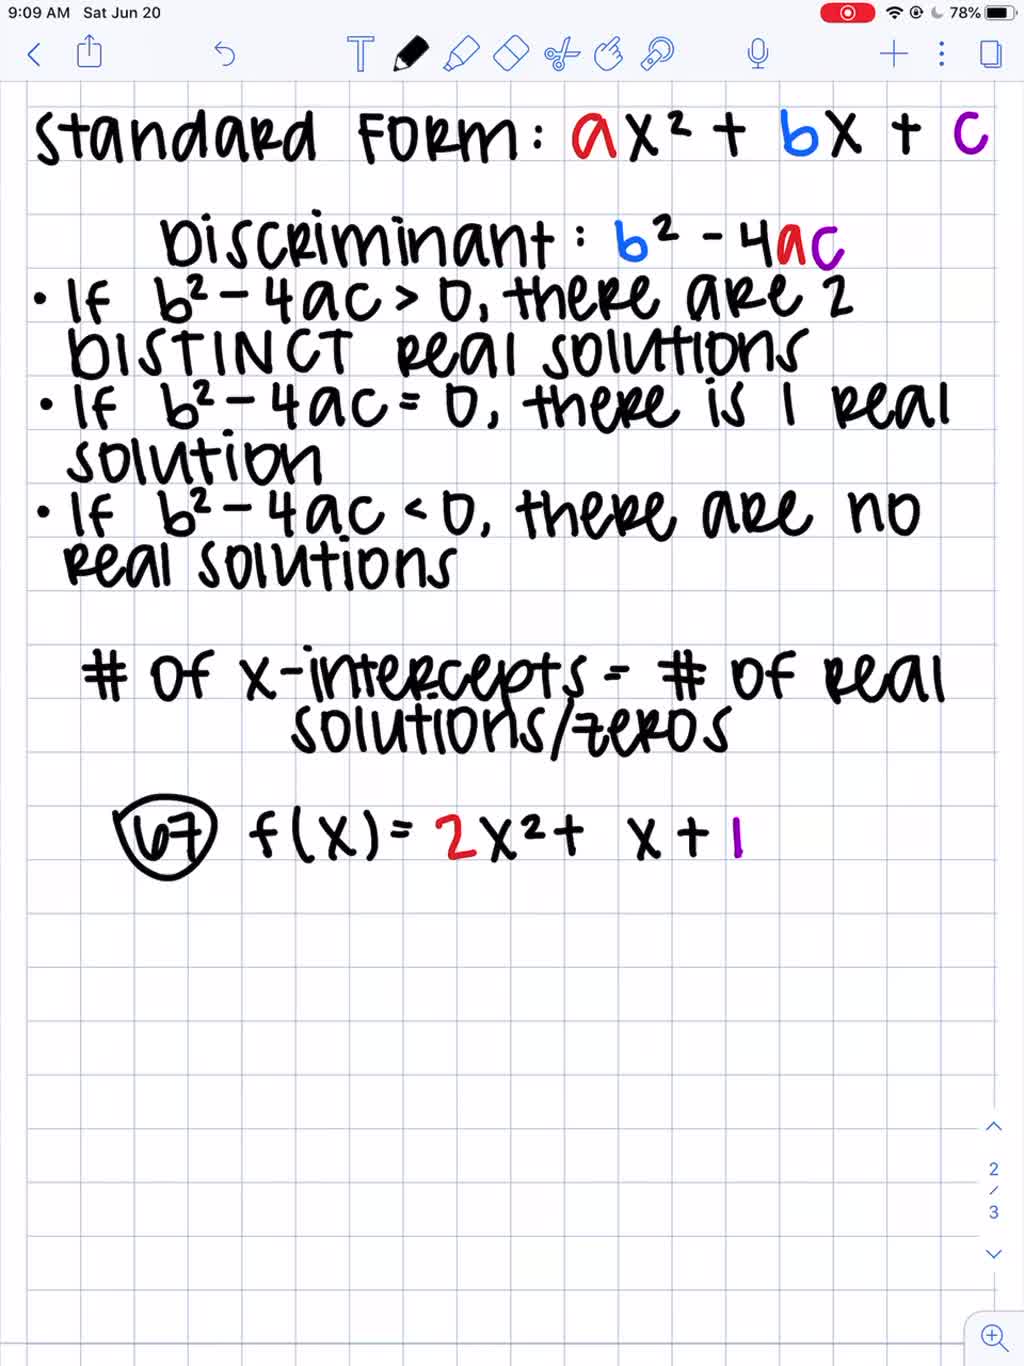 9:09 AM Sat Jun 20 78%
T
Standard Form: ax² + bx + c
Discriminant: b² - 4ac
• If b² - 4ac > 0, there are 2
DISTINCT real solutions
• If b² - 4ac = 0, there is 1 real
solution
• If b² - 4ac < 0, there are no
real solutions
# of x-intercepts = # of real
solutions/zeros
67 f(x) = 2x² + x + 1
2
/
3